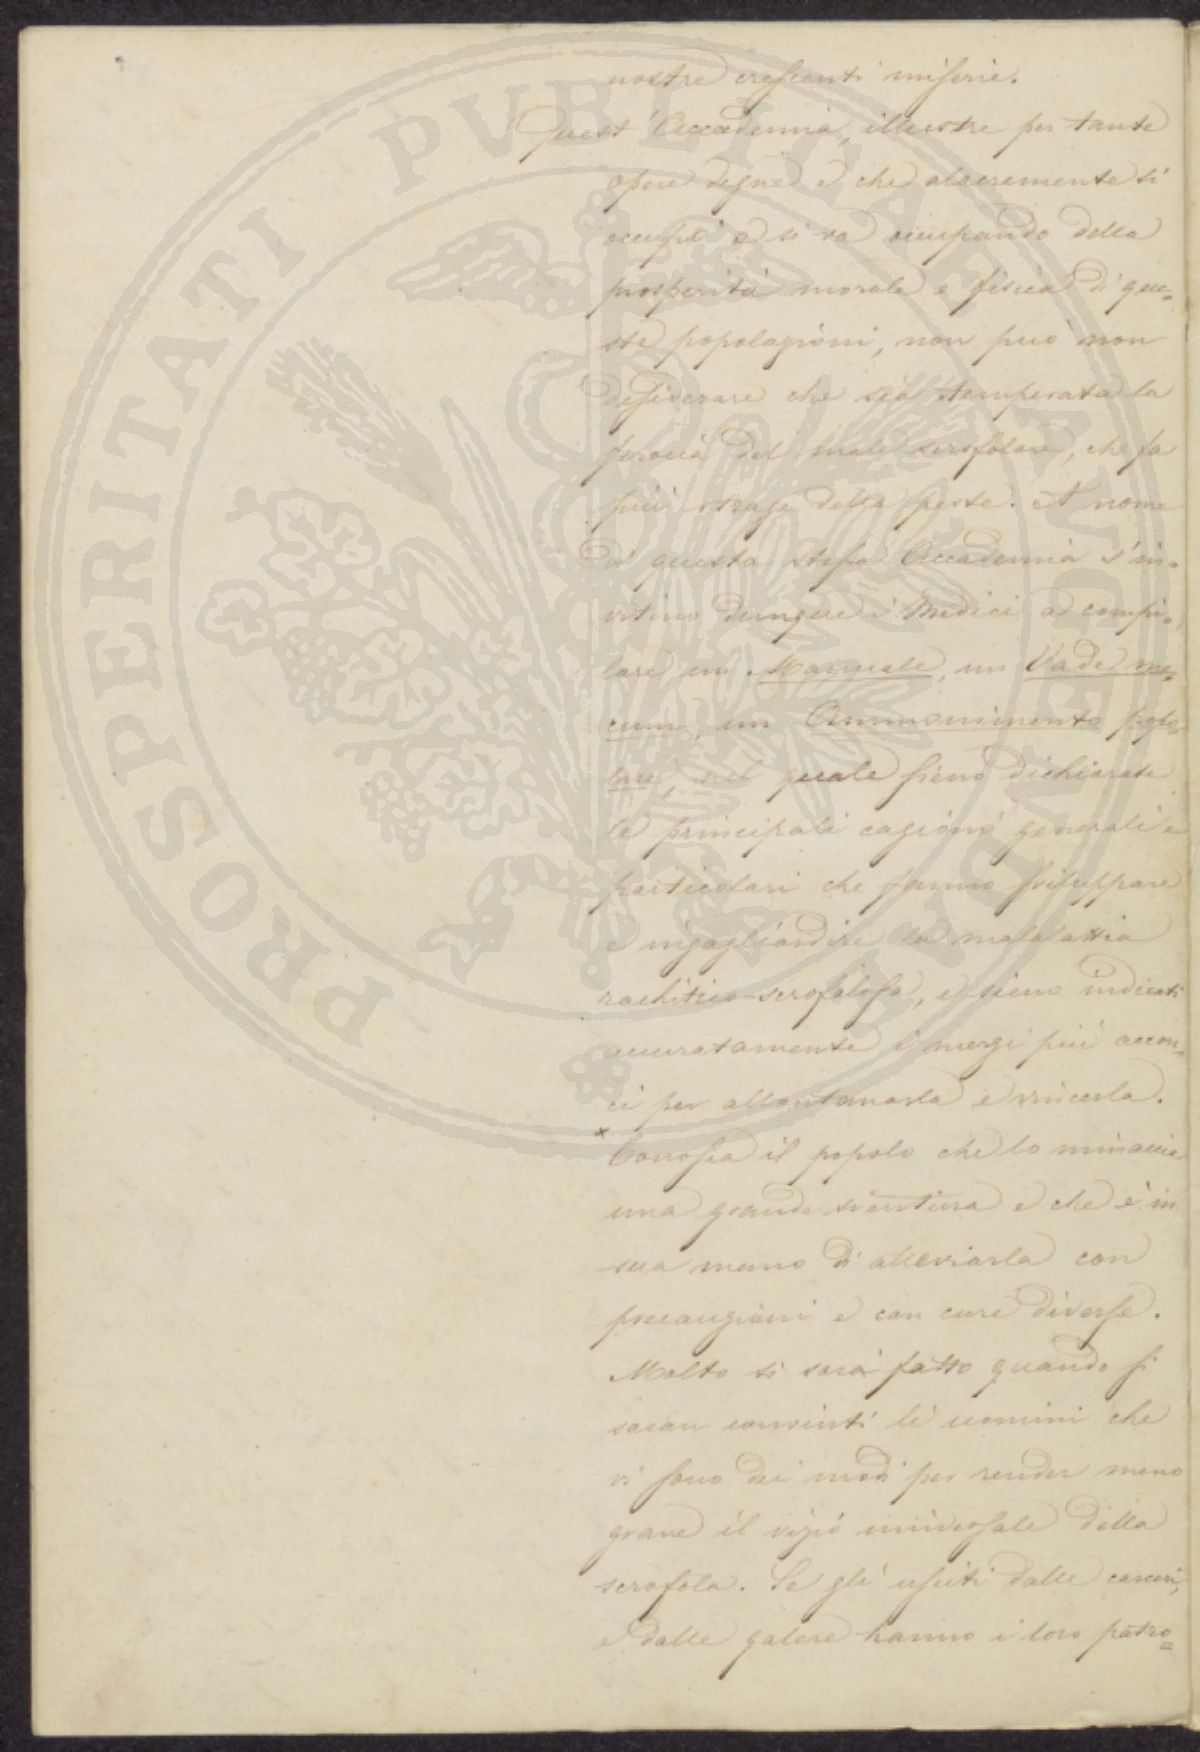 nostre crescenti miserie.
Quest' Accademia, illustre per tante
opere degne e che alacremente si
occupò e si va occupando della
prosperità morale e fisica di que=
ste popolazioni, non può non
desiderare che sia temperata la
ferocia del male scrofolare, che fa
più strage della peste. A nome
di questa stessa Accademia s'in=
vitino dunque i Medici a compi=
lare un Manuale, un Vade me=
cum, un Ammonimento popo=
lare, nel quale sieno dichiarate
le principali cagioni generali e
particolari che fanno sviluppare
e ingagliardire la malalattia
rachitico-scrofolosa, e sieno indicati
accuratamente i mezzi più accon=
ci per allontanarla e vincerla.
Conosca il popolo che lo minaccia
una grande sventura e che è in
sua mano di alleviarla con
precauzioni e con cure diverse.
Molto si sarà fatto quando si
saran convinti li uomini che
vi sono dei modi per render meno
grave il vizio universale della
scrofola. Se gli usciti dalle carceri,
e dalle galere hanno i loro patro=
PROSPERITATI PVBLICAE AVGENDAE